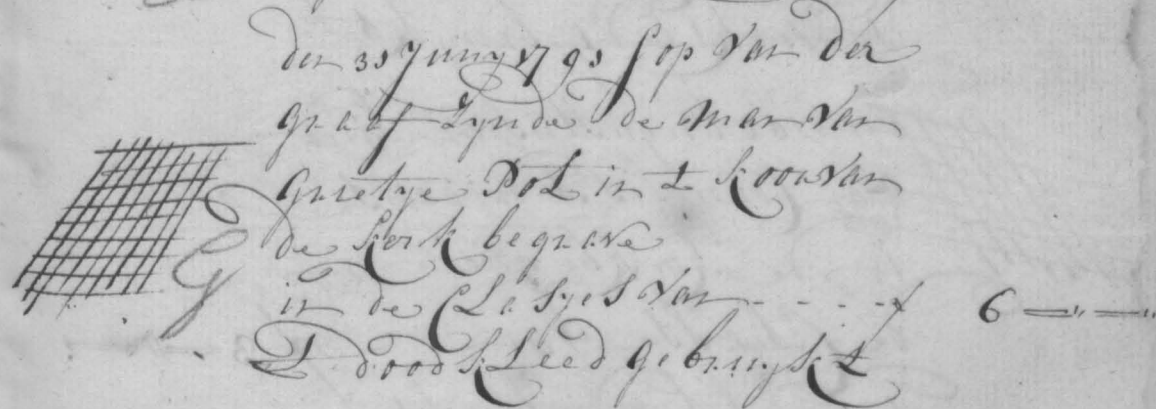 den 31 Juny 1791 sop van der
graaf Zynde de man van
Grietye Pot in t koor van
de kerk begrave
G
in de CLasjes van - - - - f 6 = " = "
T doodkLeed gebruykt